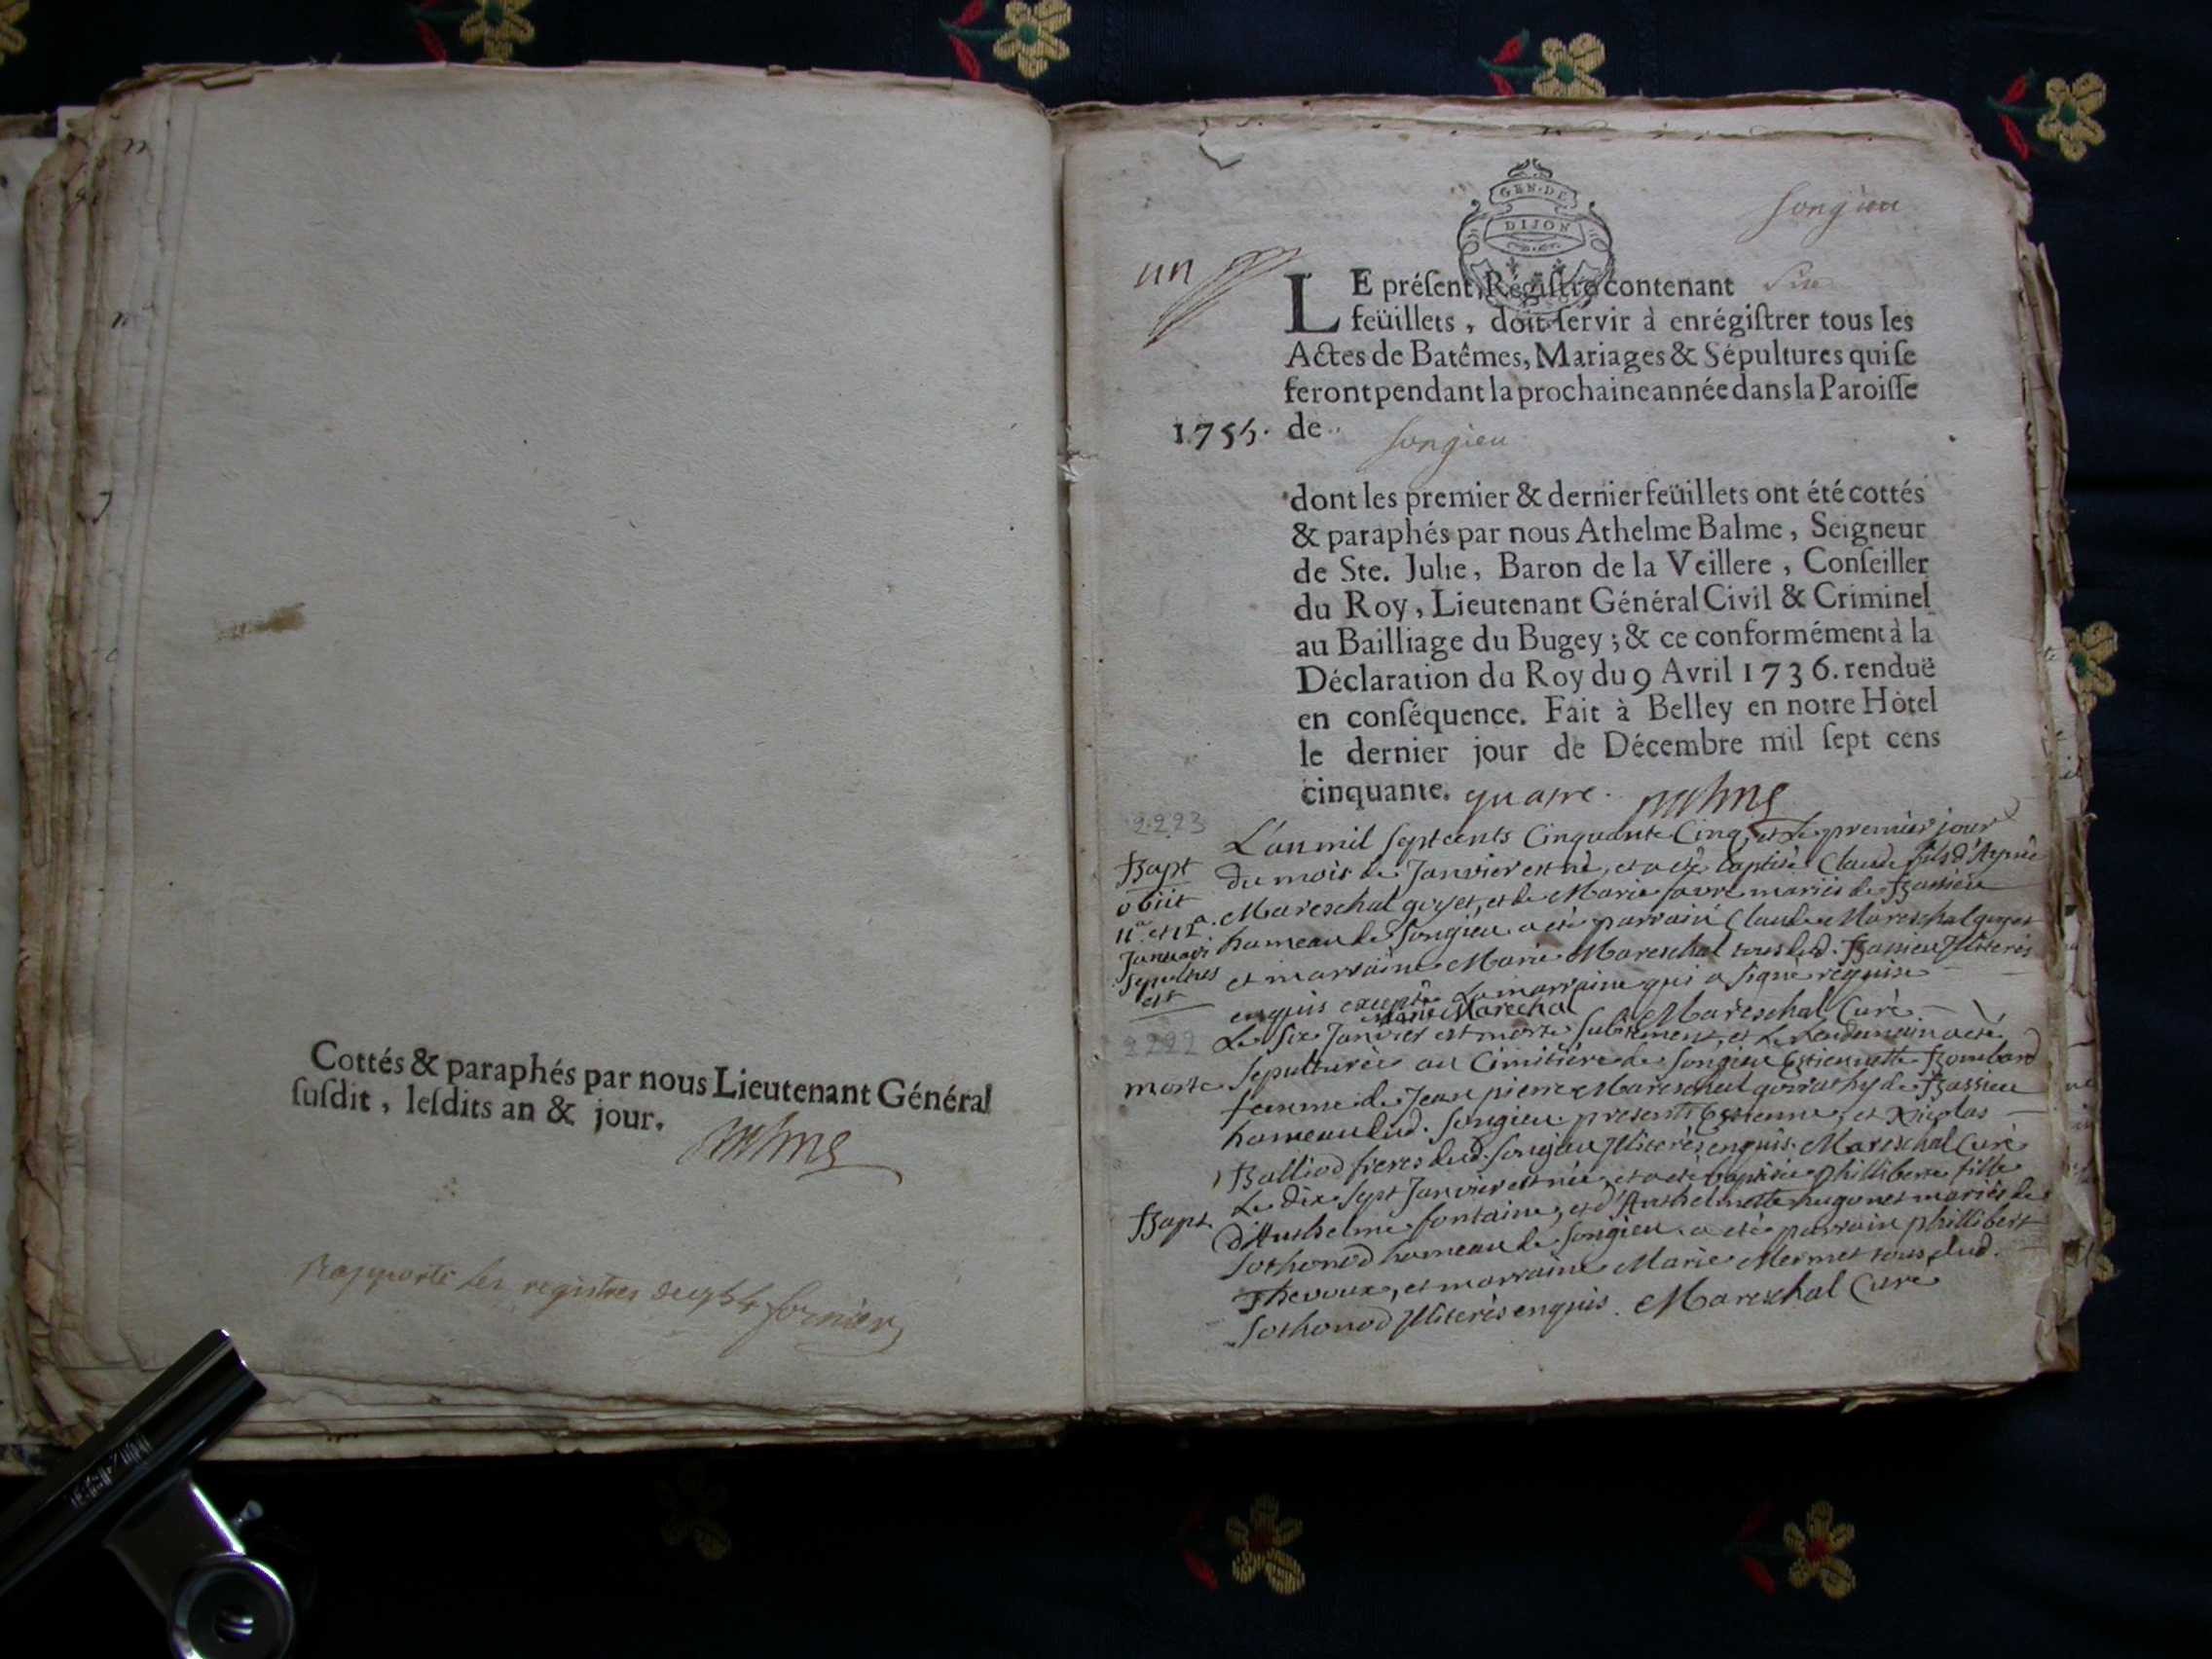 Cottés & paraphés par nous Lieutenant Général
ſuſdit, leſdits an & jour.
Rapporté les registres
songieu
GEN·DE
DIJON
un
LE préſent Régiſtre contenant Six
feüillets, doit ſervir à enrégiſtrer tous les
Actes de Batêmes, Mariages & Sépultures qui ſe
feront pendant la prochaine année dans la Paroiſſe
1755. de songieu
dont les premier & dernier feüillets ont été cottés
& paraphés par nous Athelme Balme, Seigneur
de Ste. Julie, Baron de la Veillere, Conſeiller
du Roy, Lieutenant Général Civil & Criminel
au Bailliage du Bugey; & ce conformément à la
Déclaration du Roy du 9 Avril 1736. renduë
en conſéquence. Fait à Belley en notre Hôtel
le dernier jour de Décembre mil ſept cens
cinquante. quatre.
2223
Bapt
obiit
11a. et 12a.
Januarii
sepultus
est
L'an mil septcents Cinquante Cinq, et le premier jour
du mois de Janvier est né, et a été baptisé Claude fils d'Aymé
Mareschal goyet, et de Marie favre mariés de Bassieu
hameau de Songieu a été parrain Claude Mareschal goyet
et marraine Marie Mareschal tous dud. Bassieu Illiterés
enquis excepté la marraine qui a signé requise
Marie Marechal Mareschal Curé
2222
morte
Le Six Janvier est morte subitement, et le lendemain a été
sepulturée au Cimitiére de Songieu Estiennette Bombard
femme de Jean pierre Mareschal de Bassieu
hameau dud. Songieu presents Estienne, et Nicolas
Balliod freres dud. Songieu Illiterés enquis. Mareschal Curé
Bapt.
Le dix Sept Janvier est née, et a été baptisée Phillibertte fille
d'Anthelme fontaine, et d'Anthelmette hugonet mariés de
Sothonod hameau de Songieu a été parrain phillibert
Thevoux, et marraine Marie Mermet tous dud.
Sothonod Illiterés enquis. Mareschal Curé